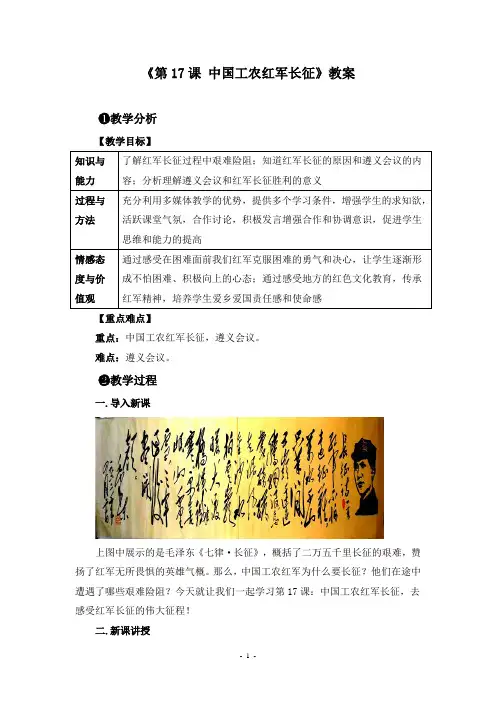 《第17课 中国工农红军长征》教案
❶教学分析
【教学目标】
知识与
能力
了解红军长征过程中艰难险阻；知道红军长征的原因和遵义会议的内
容；分析理解遵义会议和红军长征胜利的意义
过程与
方法
充分利用多媒体教学的优势，提供多个学习条件，增强学生的求知欲，
活跃课堂气氛，合作讨论，积极发言增强合作和协调意识，促进学生
思维和能力的提高
情感态
度与价
值观
通过感受在困难面前我们红军克服困难的勇气和决心，让学生逐渐形
成不怕困难、积极向上的心态；通过感受地方的红色文化教育，传承
红军精神，培养学生爱乡爱国责任感和使命感
【重点难点】
重点：中国工农红军长征，遵义会议。
难点：遵义会议。
❷教学过程
一.导入新课
上图中展示的是毛泽东《七律·长征》，概括了二万五千里长征的艰难，赞
扬了红军无所畏惧的英雄气概。那么，中国工农红军为什么要长征？他们在途中
遭遇了哪些艰难险阻？今天就让我们一起学习第17课：中国工农红军长征，去
感受红军长征的伟大征程！
二.新课讲授
- 1 -